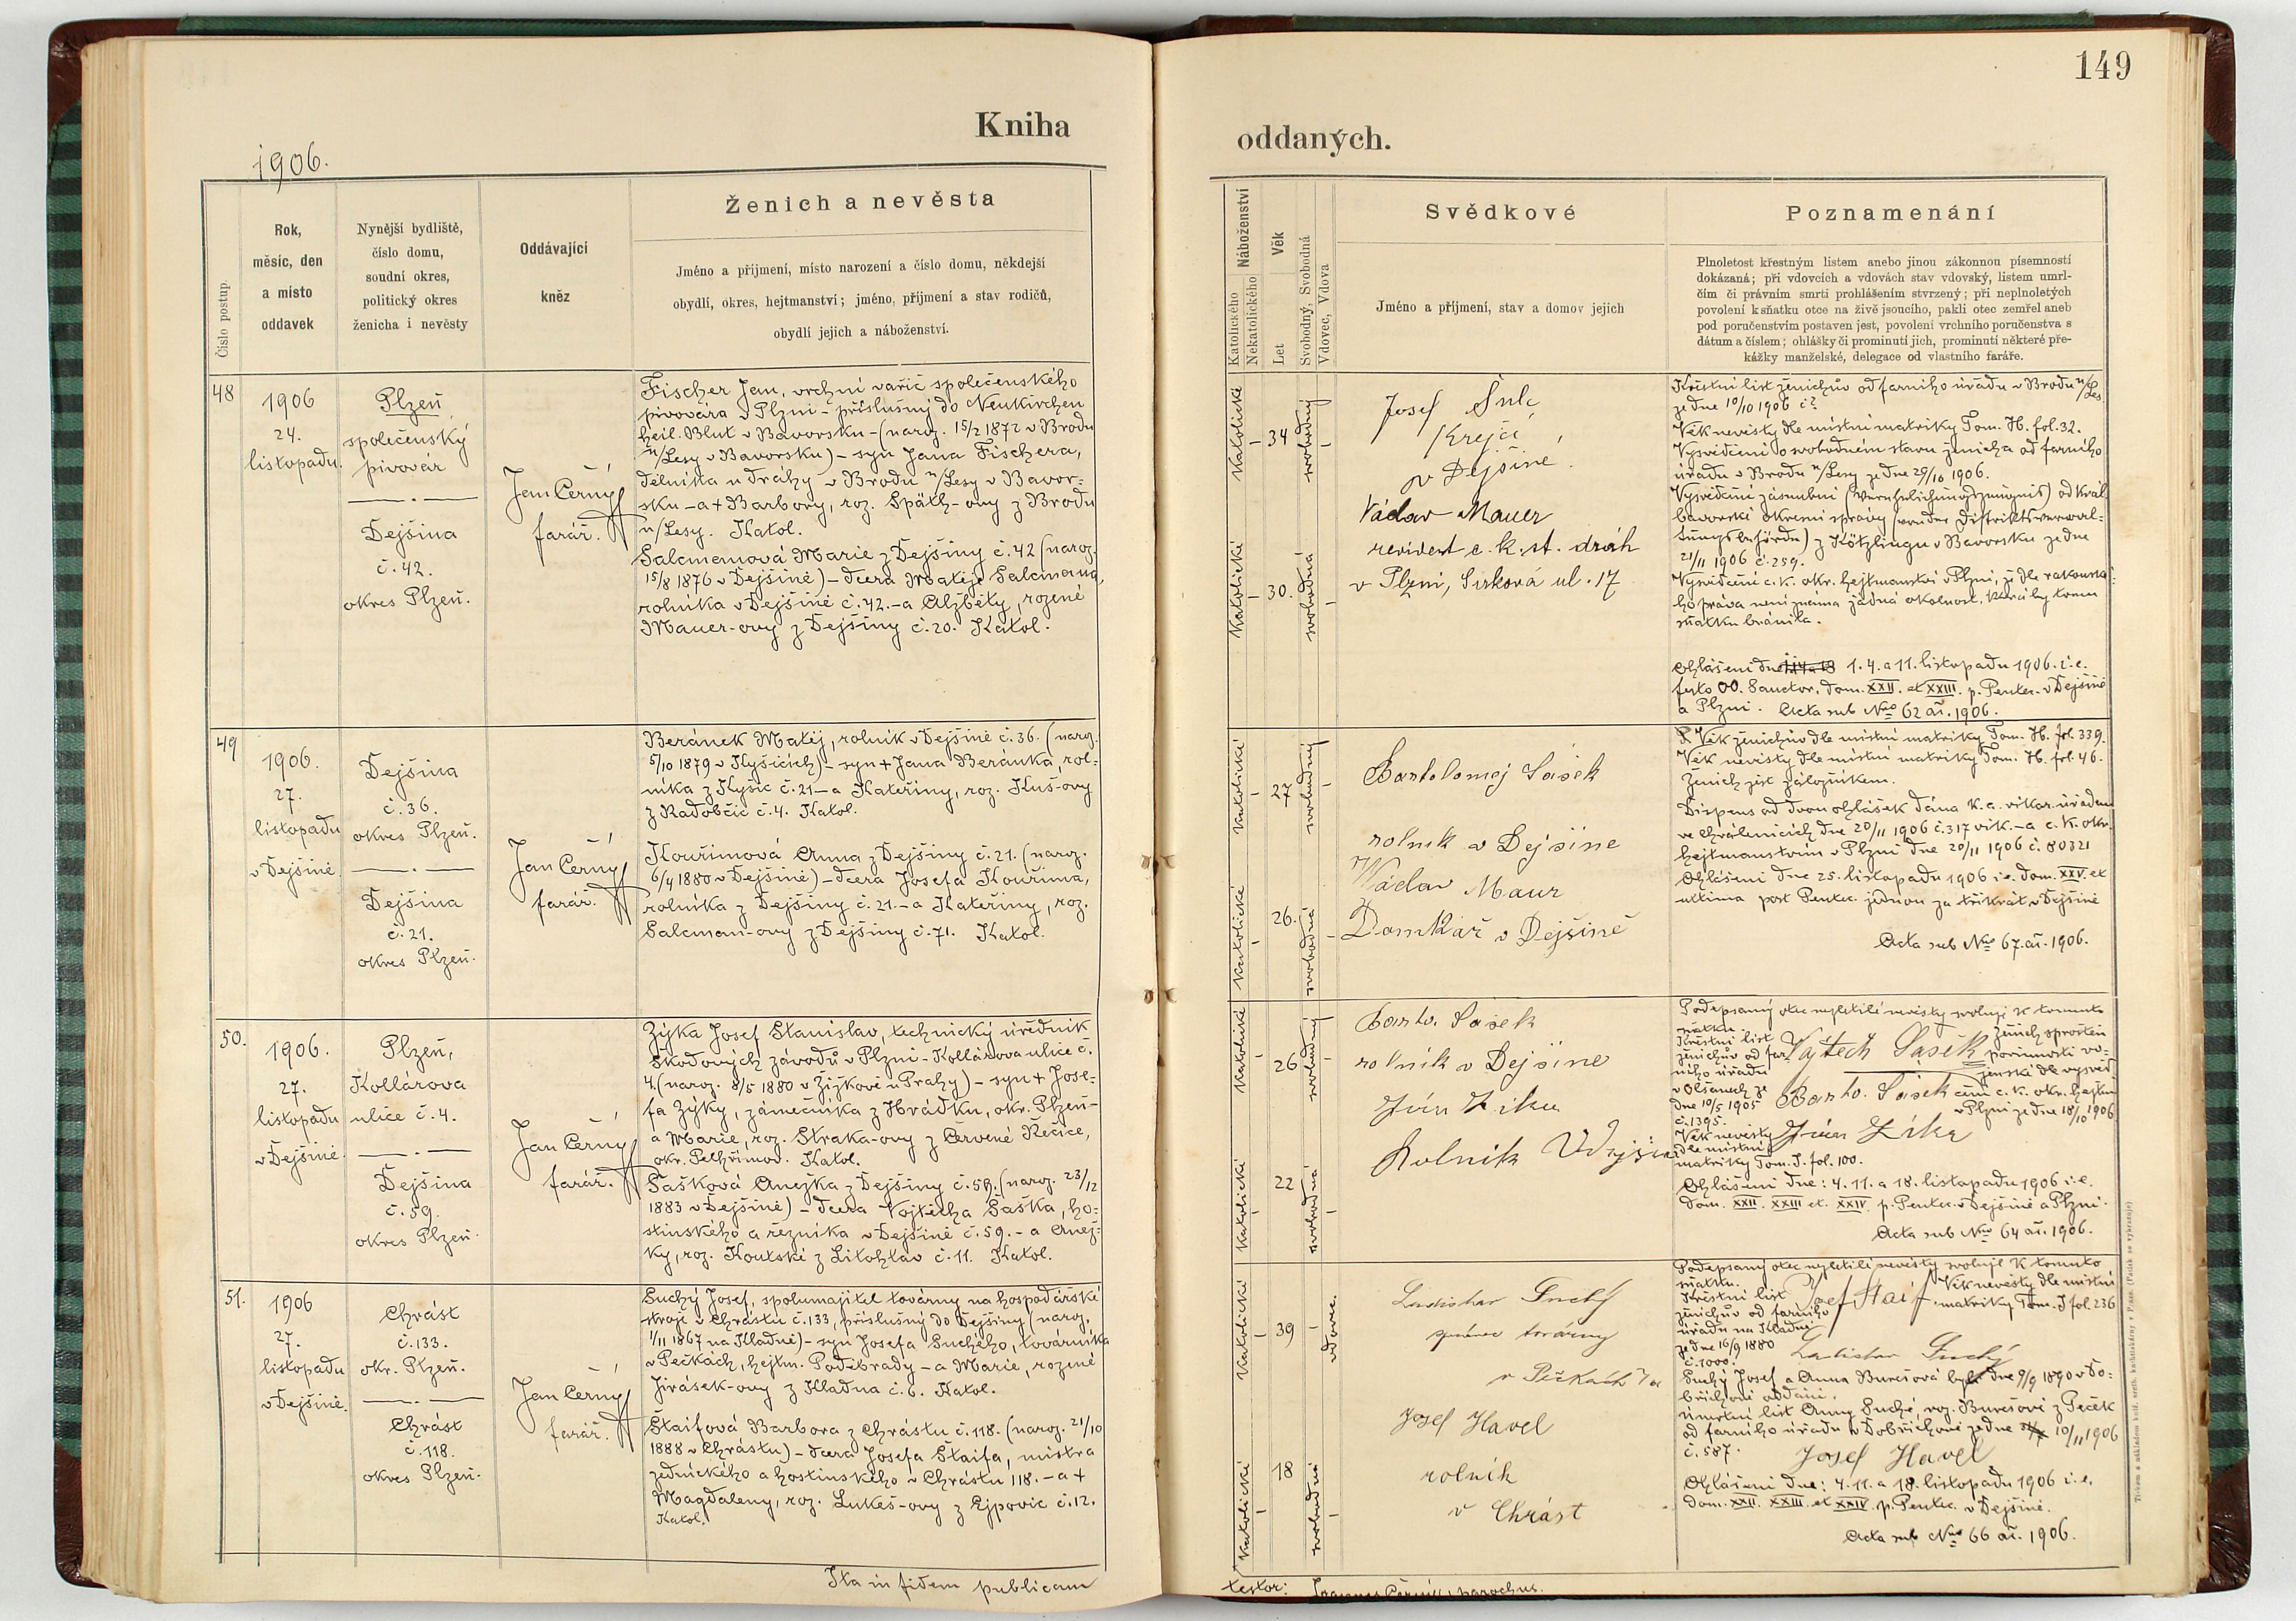 149
Kniha
oddaných.
1906.
Číslo postup.
Rok,
měsíc, den
a místo
oddavek
Nynější bydliště,
číslo domu,
soudní okres,
politický okres
ženicha i nevěsty
Oddávající
kněz
Ženich a nevěsta
Jméno a příjmení, místo narození a číslo domu, někdejší
obydlí, okres, hejtmanství; jméno, příjmení a stav rodičů,
obydlí jejich a náboženství.
Katolického
Nekatolického
Náboženství
Let
Věk
Svobodný, Svobodná
Vdovec, Vdova
Svědkové
Jméno a příjmení, stav a domov jejich
Poznamenání
Plnoletost křestným listem anebo jinou zákonnou písemností
dokázaná; při vdovcích a vdovách stav vdovský, listem umrl-
čím či právním smrti prohlášením stvrzený; při neplnoletých
povolení k sňatku otce na živě jsoucího, pakli otec zemřel aneb
pod poručenstvím postaven jest, povolení vrchního poručenstva s
dátum a číslem; ohlášky či prominutí jich, prominutí některé pře-
kážky manželské, delegace od vlastního faráře.
48
1906
24.
listopadu.
Plzeň
společenský
pivovár
Dejšina
č. 42.
okres Plzeň.
Jan Černý
farář.
Fischer Jan, vrchní vařič společenského
pivovára v Plzni - příslušný do Neukirchen
heil. Blut v Bavorsku - (naroz. 15/2 1872 v Brodu
n/Lesy v Bavorsku) - syn Jana Fischera,
dělníka u dráhy v Brodu n/Lesy v Bavor=
sku - a + Barbory, roz. Späth-ovy z Brodu
n/Lesy. Katol.
Salcmanová Marie z Dejšiny č. 42 (naroz.
15/8 1876 v Dejšině) - dcera Matěje Salcmana,
rolníka v Dejšině č. 42. - a Alžběty, rozené
Mauer-ovy z Dejšiny č. 20. Katol.
Katolické
34
svobodný
Katolické
30.
svobodná
Josef Šulc
Krejčí
v Dejšině.
Václav Mauer
revident c. k. st. drah
v Plzni, ul. 17
Křestní list ženichův od farního úřadu v Brodu n/Les.
ze dne 10/10 1906 č?
Věk nevěsty dle místní matriky Tom. H. fol. 32.
Vysvědčení o svobodném stavu ženicha od farního
úřadu v Brodu n/Lesy ze dne 29/10 1906.
Vysvědčení zásnubní (Verehelichungszeugnis) od král.
bavorské okresní správy
z Kötztingu v Bavorsku ze dne
21/11 1906 č. 259.
Vysvědčení c. k. okr. hejtmanství v Plzni, že dle rakouské=
ho práva není známa žádná okolnost, která by tomu
sňatku bránila.
Ohlášení dne 1. 4. a 11. listopadu 1906. i. e.
festo OO. Sanctor, dom. XXII. et XXIII. p. Pentec. v Dejšině
a Plzni. Acta sub Nro 62 ai. 1906.
49
1906.
27.
listopadu
v Dejšině.
Dejšina
č. 36.
okres Plzeň.
Dejšina
č. 21.
okres Plzeň.
Jan Černý
farář.
Beránek Matěj, rolník v Dejšině č. 36. (naroz.
5/10 1879 v Kyšicích) - syn + Jana Beránka, rol=
níka z Kyšic č. 21 - a Kateřiny, roz. Kuš-ovy
z Radobčic č. 4. Katol.
Kouřimová Anna z Dejšiny č. 21. (naroz.
6/4 1880 v Dejšině) - dcera Josefa Kouřima,
rolníka z Dejšiny č. 21. - a Kateřiny, roz.
Salcman-ovy z Dejšiny č. 71. Katol.
Katolické
27
svobodný
Katolické
26.
svobodná
Bartolomej Sašek
rolník v Dejšine
Václav Maur
Domkář v Dejšině
Věk ženichův dle místní matriky Tom. H. fol. 339.
Věk nevěsty dle místní matriky Tom. H. fol. 46.
Ženich jest záložníkem.
Dispens od dvou ohlášek dána k. a. vikar. úřadem
ve Chrálenicích dne 20/11 1906 č. 317 vik. - a c. k. okr.
hejtmanstvím v Plzni dne 20/11 1906 č. 80321
Ohlášeni dne 25. listopadu 1906 i. e. dom. XXV. et
ultima post Pentec. jednou za třikrát v Dejšině
Acta sub Nro 67. ai. 1906.
50.
1906.
27.
listopadu
v Dejšině.
Plzeň,
Kollárova
ulice č. 4.
Dejšina
č. 59.
okres Plzeň.
Jan Černý
farář.
Zýka Josef Stanislav, technický úředník
Škodových závodů v Plzni - Kollárova ulice č.
4. (naroz. 8/5 1880 v Žižkově u Prahy) - syn + Jose=
fa Zýky, zámečníka z Hrádku, okr. Plzeň -
a Marie, roz. Straka-ovy z Červené Řečice,
okr. Pelhřimov. Katol.
Sašková Anežka z Dejšiny č. 59. (naroz. 23/12
1883 v Dejšině) - dcera Vojtěcha Saška, ho=
stinského a řezníka v Dejšině č. 59. - a Anež=
ky, roz. Koutské z Litohlav č. 11. Katol.
Katolické
26
svobodný
Katolické
22
svobodná
Barto. Sašek
rolník v Dejšine
Rolník
Podepsaný otec nezletilé nevěsty svoluje k tomuto
sňatku.
Křestní list
ženichův od far=
ního úřadu
v Olšanech ze
dne 10/5 1905
č. 1395.
Vojtech Sašek
Ženich sproštěn
povinnosti vo=
jenské dle vysvěd=
čení c. k. okr. hejtm.
v Plzni ze dne 18/10 1906
Barto. Sašek
Věk nevěsty
dle místní
matriky Tom. J. fol. 100.
Ohlášeni dne: 4. 11. a 18. listopadu 1906 i. e.
dom. XXII. XXIII et. XXIV. p. Pentec. v Dejšině a Plzni.
Acta sub Nro 64 ai. 1906.
51.
1906
27.
listopadu
v Dejšině.
Chrást
č. 133.
okr. Plzeň.
Chrást
č. 118.
okres Plzeň.
Jan Černý
farář.
Suchý Josef, spolumajitel továrny na hospodářské
stroje v Chrástu č. 133, příslušný do Dejšiny (naroz.
1/11 1867 na Kladně) - syn Josefa Suchého, továrníka
v Pečkách, hejtm. Poděbrady - a Marie, rozené
Jirásek-ovy z Kladna č. 6. Katol.
Štaifová Barbora z Chrástu č. 118. (naroz. 21/10
1888 v Chrástu) - dcera Josefa Štaifa, mistra
zednického a hostinského v Chrástu 118. - a +
Magdaleny, roz. Lukeš-ovy z Ejpovic č. 12.
Katol.
Katolické
39
vdovec.
Katolické
18
svobodná
Ladislav Suchý
správce továrny
v Pečkách
Josef Havel
rolník
v Chrást
Podepsaný otec nezletilé nevěsty svoluje k tomuto
sňatku.
Křestní list
ženichův od farního
úřadu na Kladně
ze dne 16/9 1880
č. 1000.
Josef Staif
Věk nevěsty dle místní
matriky Tom. J fol. 236
Ladislav Suchý
Suchý Josef a Anna Burešová byli dne 9/9 1890 v Do=
břichově oddáni.
Úmrtní list Anny Suché, roz. Burešové z Peček
od farního úřadu v Dobřichově ze dne 10/11 1906
č. 587.
Josef Havel
Ohlášeni dne: 4. 11. a 18. listopadu 1906 i. e.
dom. XXII. XXIII. et XXIV. p. Pentec. v Dejšině.
Acta sub Nro 66 ai. 1906.
Ita in fidem publicam
testor: Joannes Černý, parochus.